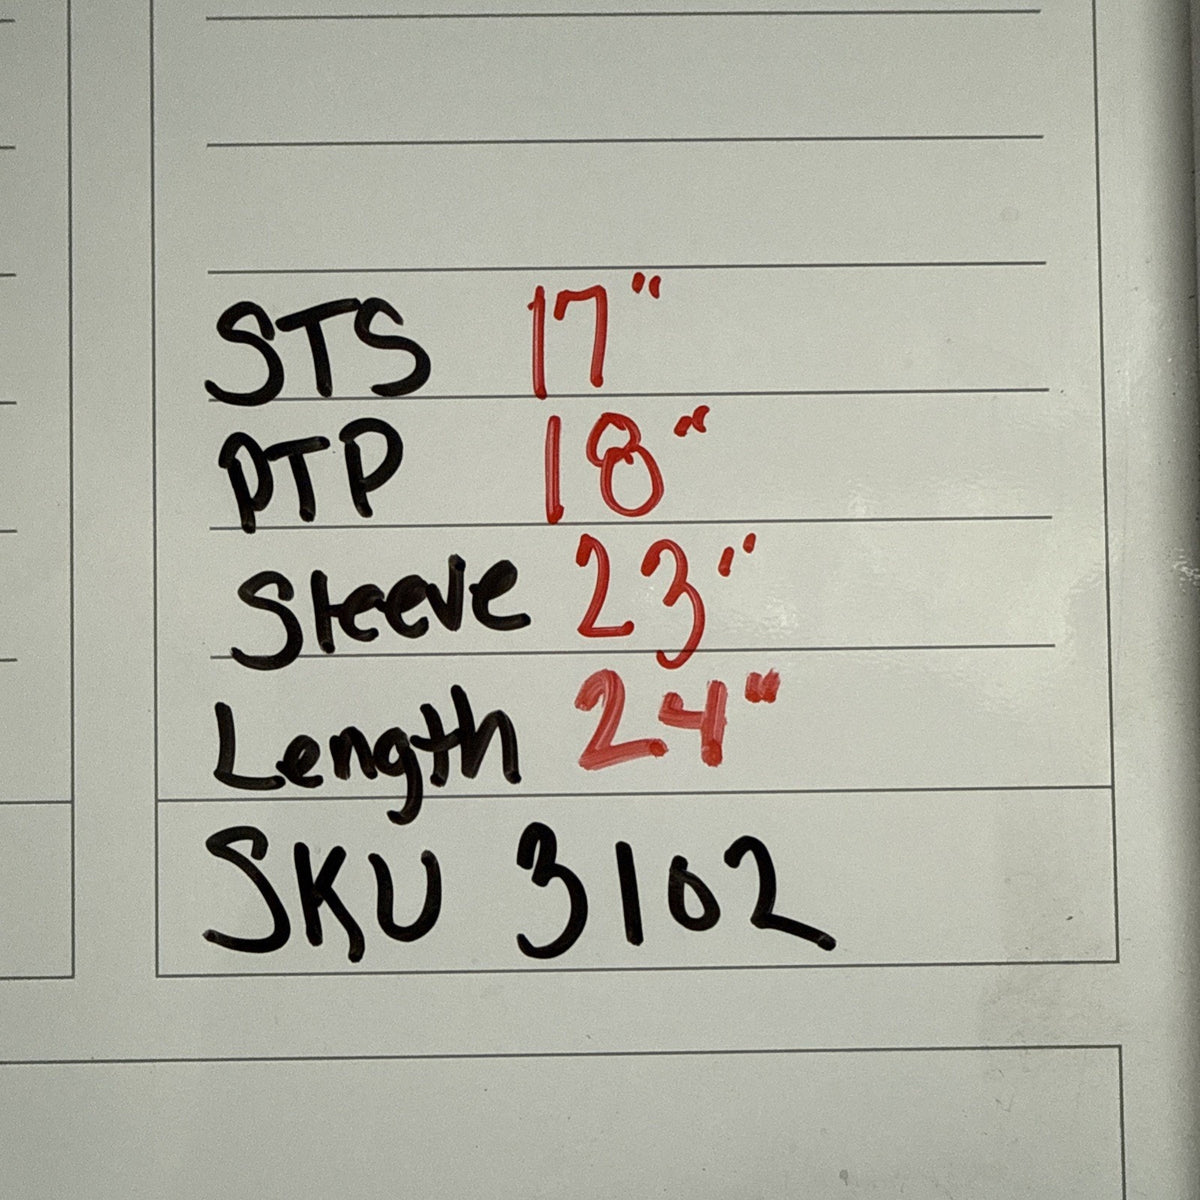 STS 17"
PTP 18"
Sleeve 23"
Length 24"
SKU 3102